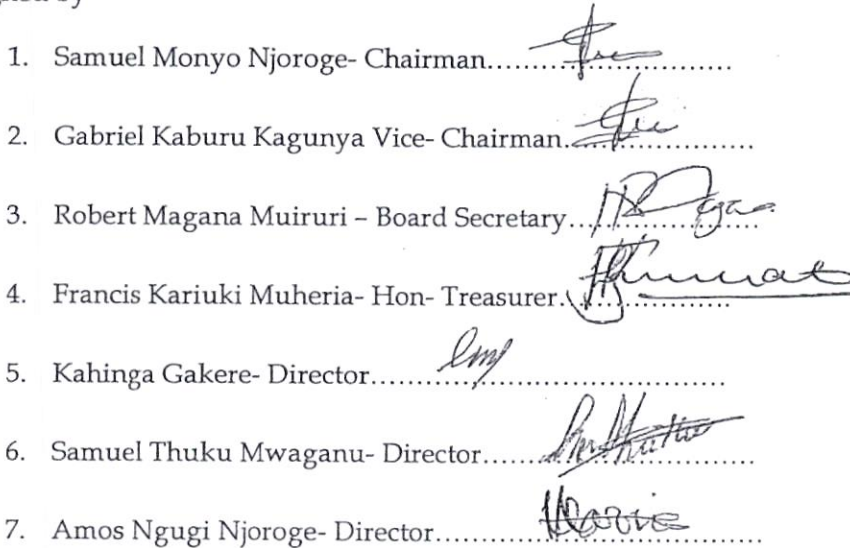 1. Samuel Monyo Njoroge- Chairman
2. Gabriel Kaburu Kagunya Vice- Chairman
3. Robert Magana Muiruri – Board Secretary
4. Francis Kariuki Muheria- Hon- Treasurer
5. Kahinga Gakere- Director
6. Samuel Thuku Mwaganu- Director
7. Amos Ngugi Njoroge- Director